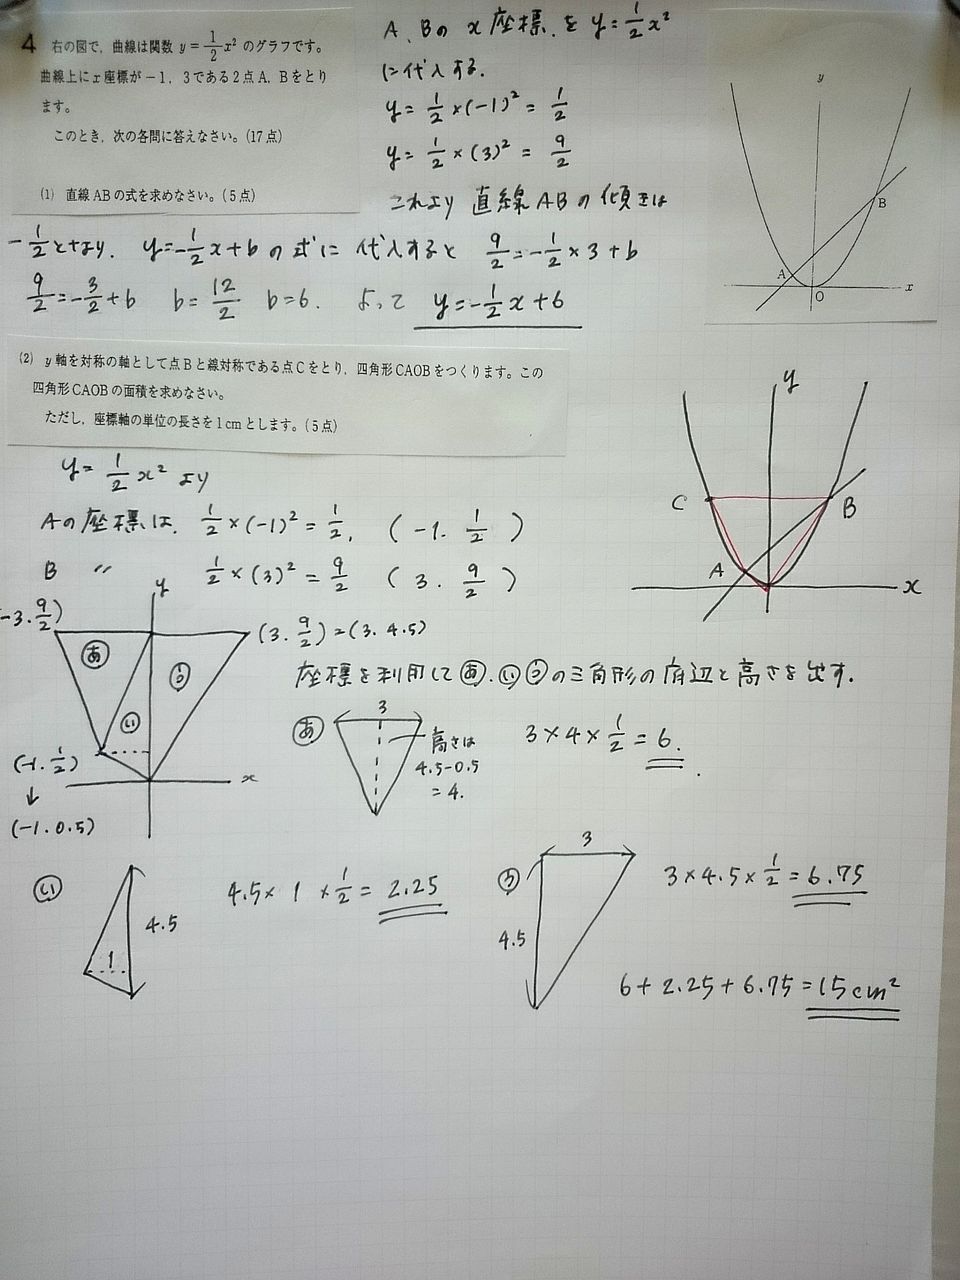 4 右の図で、曲線は関数 y=1/2x² のグラフです。
曲線上にx座標が－1，3である2点A，Bをとり
ます。
このとき、次の各問に答えなさい。(17点)
(1) 直線ABの式を求めなさい。(5点)
A、Bの x座標、を y=1/2x²
に代入する.
y= 1/2 ×(-1)² = 1/2
y= 1/2 × (3)² = 9/2
これより 直線ABの傾きは
-1/2となり. y=-1/2x+b の式に代入すると 9/2=-1/2×3+b
9/2=-3/2+b b=12/2 b=6. よって y=-1/2x+6
y
B
A
O
x
(2) y軸を対称の軸として点Bと線対称である点Cをとり，四角形CAOBをつくります。この
四角形CAOBの面積を求めなさい。
ただし，座標軸の単位の長さを1cmとします。(5点)
y= 1/2 x² より
Aの座標は、 1/2×(-1)²=1/2, (-1. 1/2)
B 〃 1/2×(3)²=9/2 (3. 9/2)
y
C
B
A
x
-3.9/2)
y
(3.9/2)=(3.4.5)
あ
う
い
(-1.1/2)
x
↓
(-1.0.5)
座標を利用して あ.い う の三角形の底辺と高さを出す.
あ
3
高さは
4.5-0.5
=4.
3×4×1/2=6.
い
4.5
1
4.5×1×1/2=2.25
う
3
4.5
3×4.5×1/2=6.75
6+2.25+6.75=15cm²